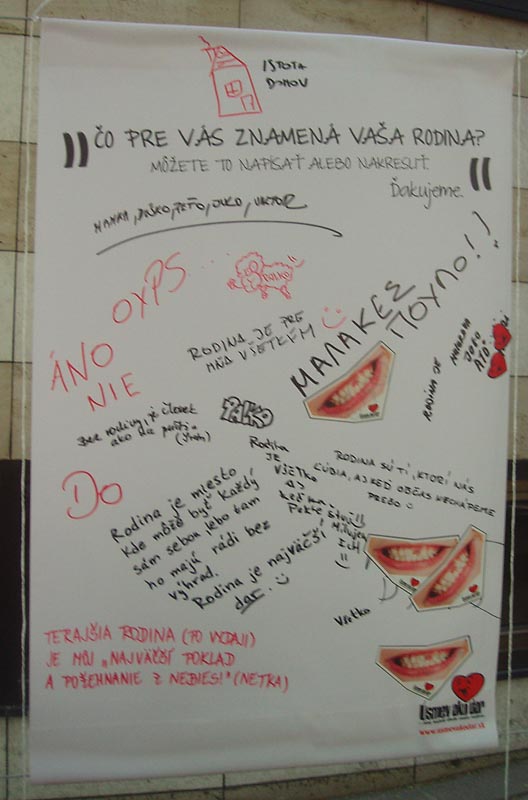 ISTOTA
DOMOV
"ČO PRE VÁS ZNAMENÁ VAŠA RODINA?
MÔŽETE TO NAPÍSAŤ ALEBO NAKRESLIŤ.
Ďakujeme."
OYPS...
RODINA JE PRE
MŇA VŠETKÝM
ΜΑΛΑΚΕΣ
ΠΟΥΛΟ!!
ÁNO
NIE
RODINA JE
Bez rodiny je človek
ako na púšti
DO
Rodina je miesto
kde môže byť každý
sám sebou lebo tam
ho majú rádi bez
výhrad.
Rodina je najväčší
dar.
Rodina
JE
VŠETKO
Milujem
ICH!
RODINA SÚ TÍ, KTORÍ NÁS
ĽÚBIA, AJ KEĎ OBČAS NECHÁPEME
PREČO
Všetko
TERAJŠIA RODINA (PO VYDAJI)
JE MÔJ "NAJVÄČŠÍ POKLAD
A POŽEHNANIE Z NEBIES!" (NETKA)
Úsmev ako dar
www.usmevakodar.sk